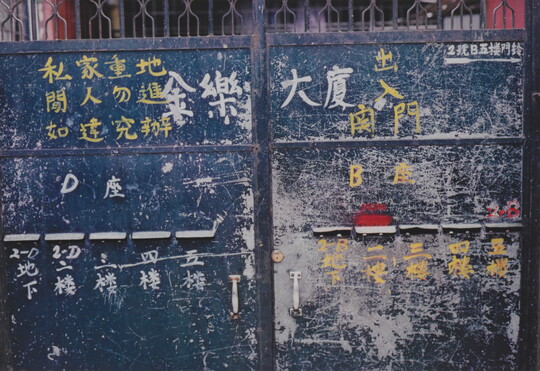 私家重地
間人勿進
如違究辦
金樂大廈
出入
南門
2號B五樓門鈴
D座
B座
2-D地下
2-D二樓
三樓
四樓
五樓
2-B地下
二樓
三樓
四樓
五樓